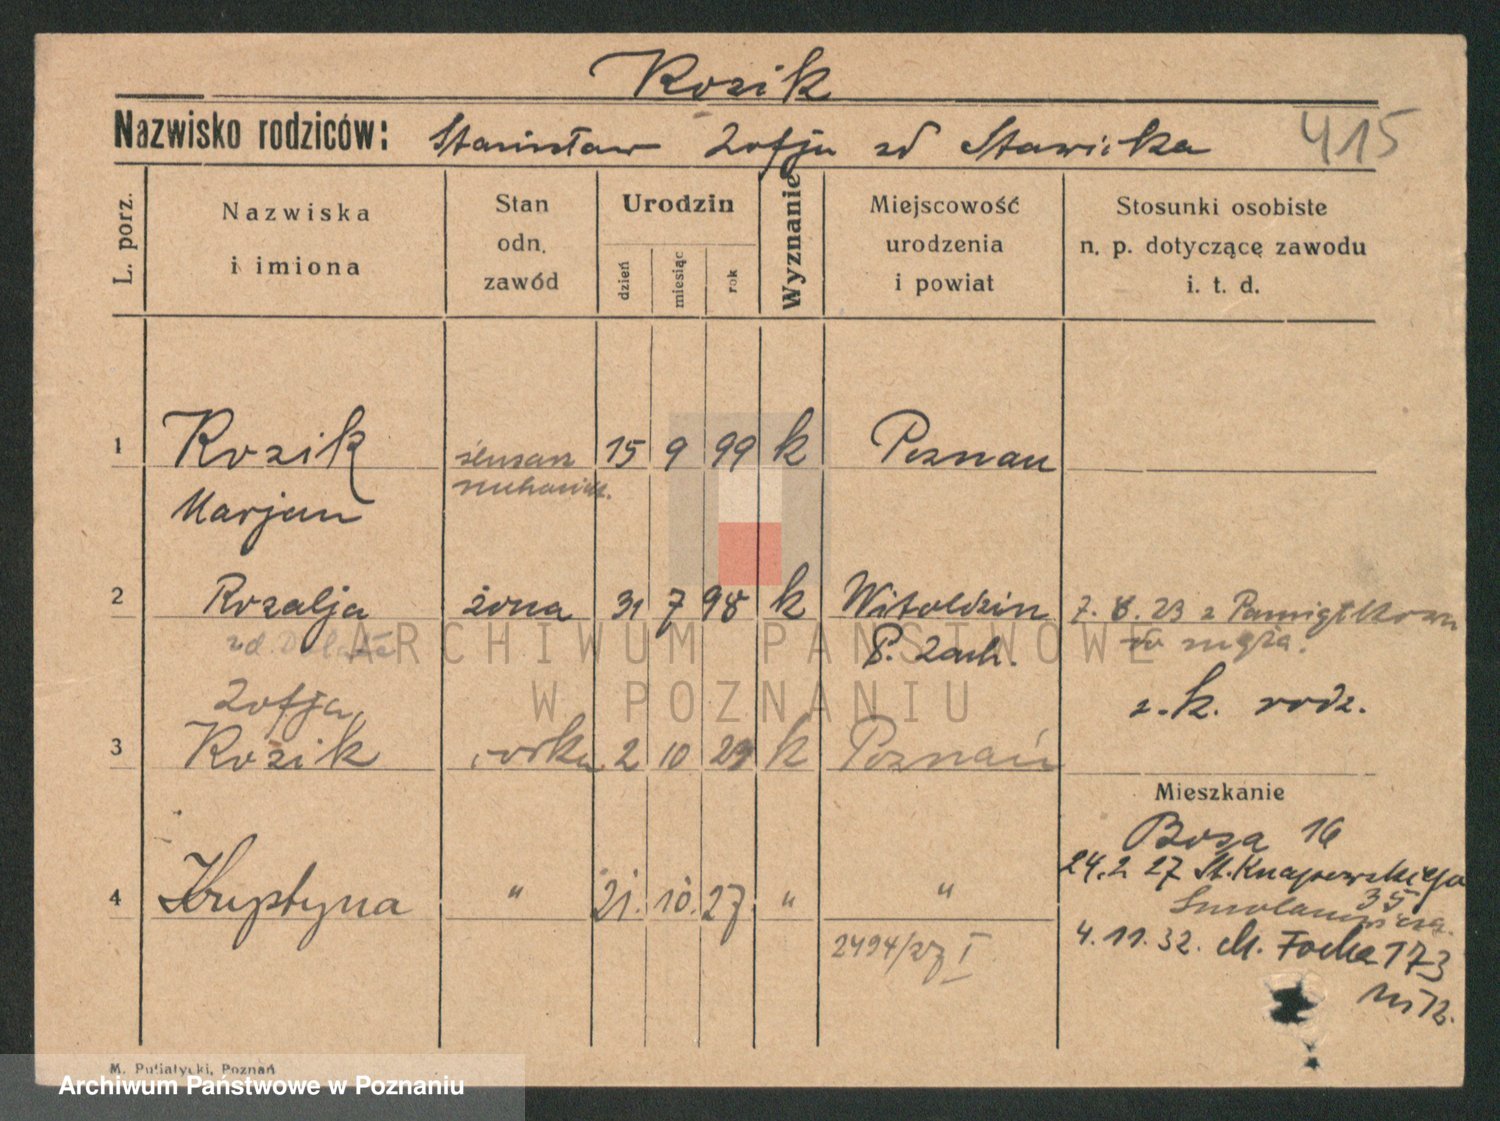 Rozik
Nazwisko rodziców: Stanisław Zofja zd Stawicka 415
L. porz.
Nazwiska
i imiona
Stan
odn.
zawód
Urodzin
dzień
miesiąc
rok
Wyznanie
Miejscowość
urodzenia
i powiat
Stosunki osobiste
n. p. dotyczącę zawodu
i. t. d.
1 Rozik ślusarz 15 9 99 k Poznan
Marjan
2 Rozalja żona 31 7 98 k Witoldzin 7. 8. 23 z Pamiątkowa
zd. do męża.
P. Zach.
z. k. rodz.
Zofja
3 Rozik córka 2 10 29 k Poznań
Mieszkanie
Bosa 16
24.2 27 St. Knapowskiego
35
4 Krystyna " 21. 10. 27 " "
4.11.32. M. Focha 173
2494/27 I
m 12.
M. Putiatycki, Poznań
ARCHIWUM PAŃSTWOWE
W POZNANIU
Archiwum Państwowe w Poznaniu